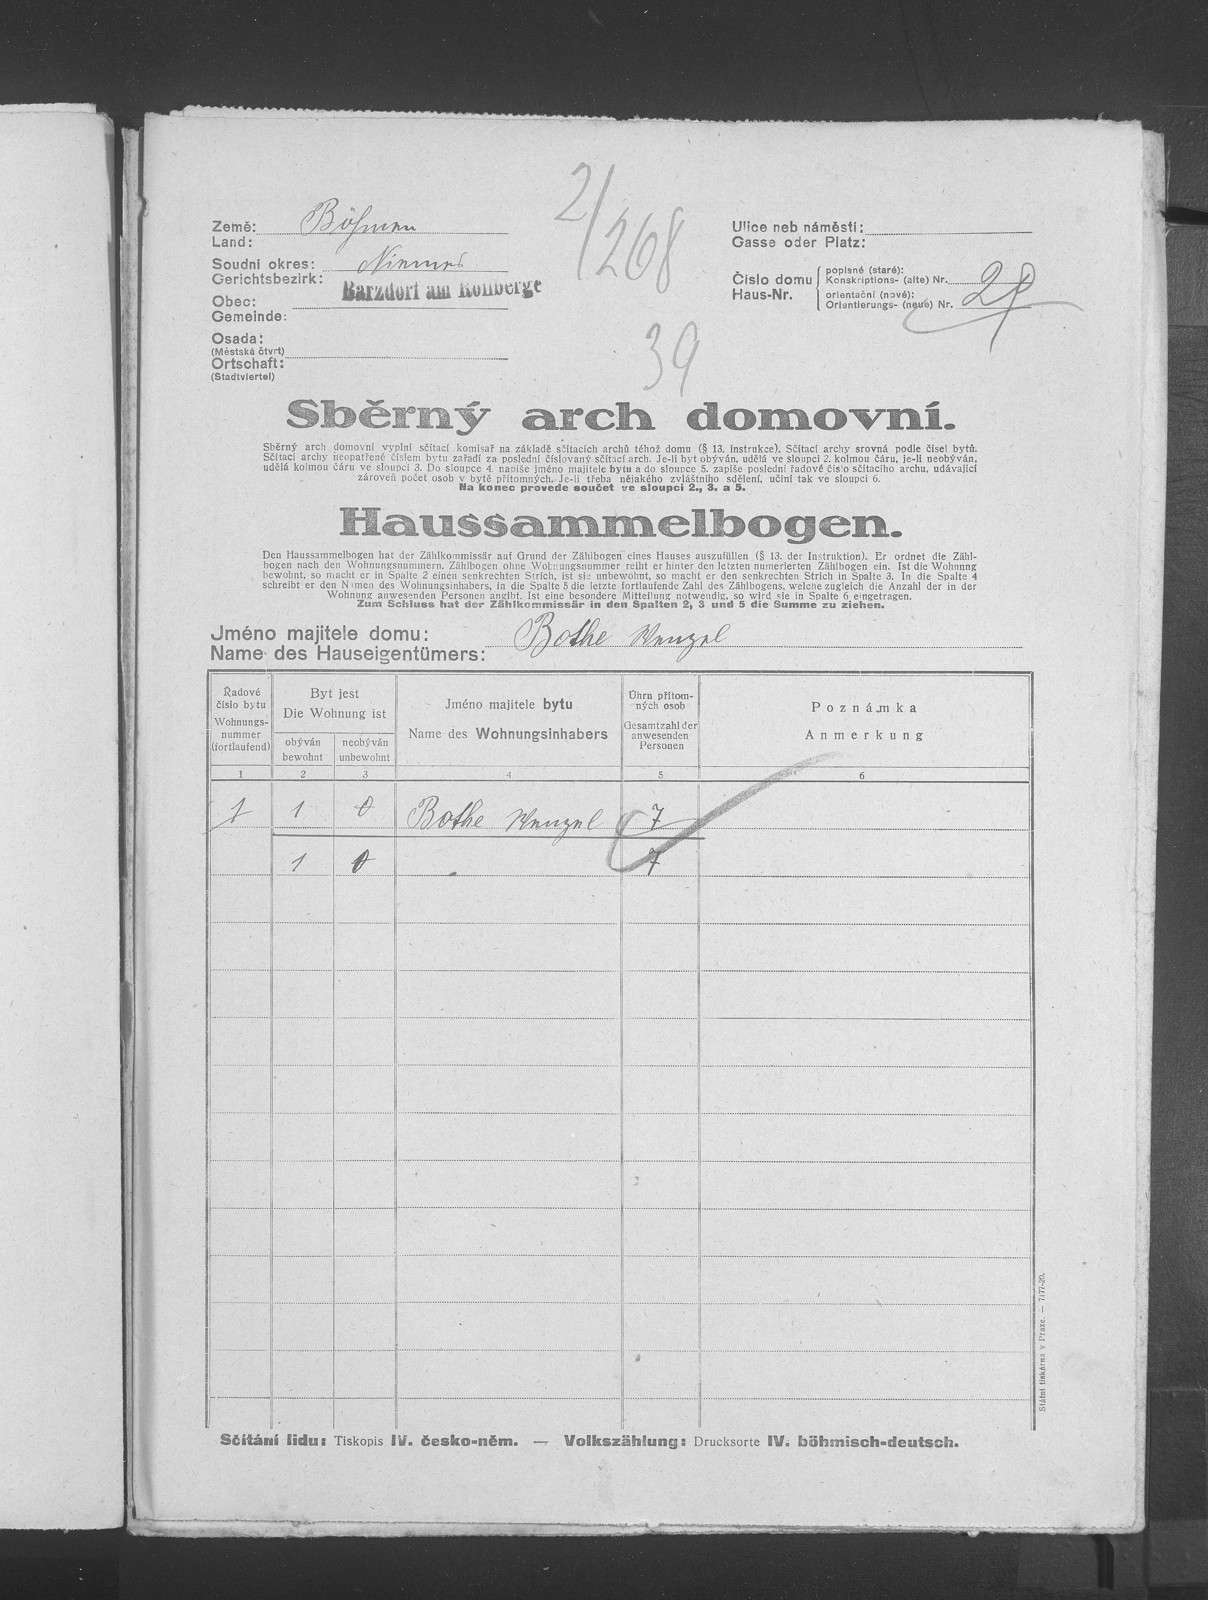 2/268
Země: Böhmen
Land:
Soudní okres: Niemes
Gerichtsbezirk:
Barzdorf am Rollberge
Obec:
Gemeinde:
Osada:
(Městská čtvrt)
Ortschaft:
(Stadtviertel)
Ulice neb náměstí:
Gasse oder Platz:
Číslo domu
Haus-Nr.
popisné (staré):
Konskriptions- (alte) Nr.
orientační (nové):
Orientierungs- (neue) Nr.
39
Sběrný arch domovní.
Sběrný arch domovní vyplní sčítací komisař na základě sčítacích archů téhož domu (§ 13. instrukce). Sčítací archy srovná podle čísel bytů.
Sčítací archy neopatřené číslem bytu zařadí za poslední číslovaný sčítací arch. Je-li byt obýván, udělá ve sloupci 2. kolmou čáru, je-li neobýván,
udělá kolmou čáru ve sloupci 3. Do sloupce 4. napíše jméno majitele bytu a do sloupce 5. zapíše poslední řadové číslo sčítacího archu, udávající
zároveň počet osob v bytě přítomných. Je-li třeba nějakého zvláštního sdělení, učiní tak ve sloupci 6.
Na konec provede součet ve sloupci 2., 3. a 5.
Haussammelbogen.
Den Haussammelbogen hat der Zählkommissär auf Grund der Zählbogen eines Hauses auszufüllen (§ 13. der Instruktion). Er ordnet die Zähl-
bogen nach den Wohnungsnummern. Zählbogen ohne Wohnungsnummer reiht er hinter den letzten numerierten Zählbogen ein. Ist die Wohnung
bewohnt, so macht er in Spalte 2 einen senkrechten Strich, ist sie unbewohnt, so macht er den senkrechten Strich in Spalte 3. In die Spalte 4
schreibt er den Namen des Wohnungsinhabers, in die Spalte 5 die letzte fortlaufende Zahl des Zählbogens, welche zugleich die Anzahl der in der
Wohnung anwesenden Personen angibt. Ist eine besondere Mitteilung notwendig, so wird sie in Spalte 6 eingetragen.
Zum Schluss hat der Zählkommissär in den Spalten 2, 3 und 5 die Summe zu ziehen.
Jméno majitele domu: Bothe Wenzel
Name des Hauseigentümers:
Řadové
číslo bytu
Wohnungs-
nummer
(fortlaufend)
Byt jest
Die Wohnung ist
obýván
bewohnt
neobýván
unbewohnt
Jméno majitele bytu
Name des Wohnungsinhabers
Úhrn přítom-
ných osob
Gesamtzahl der
anwesenden
Personen
Poznámka
Anmerkung
1 2 3 4 5 6
1 1 0 Bothe Wenzel 7
1 0 7
Sčítání lidu: Tiskopis IV. česko-něm. — Volkszählung: Drucksorte IV. böhmisch-deutsch.
Státní tiskárna v Praze. — 7177-20.